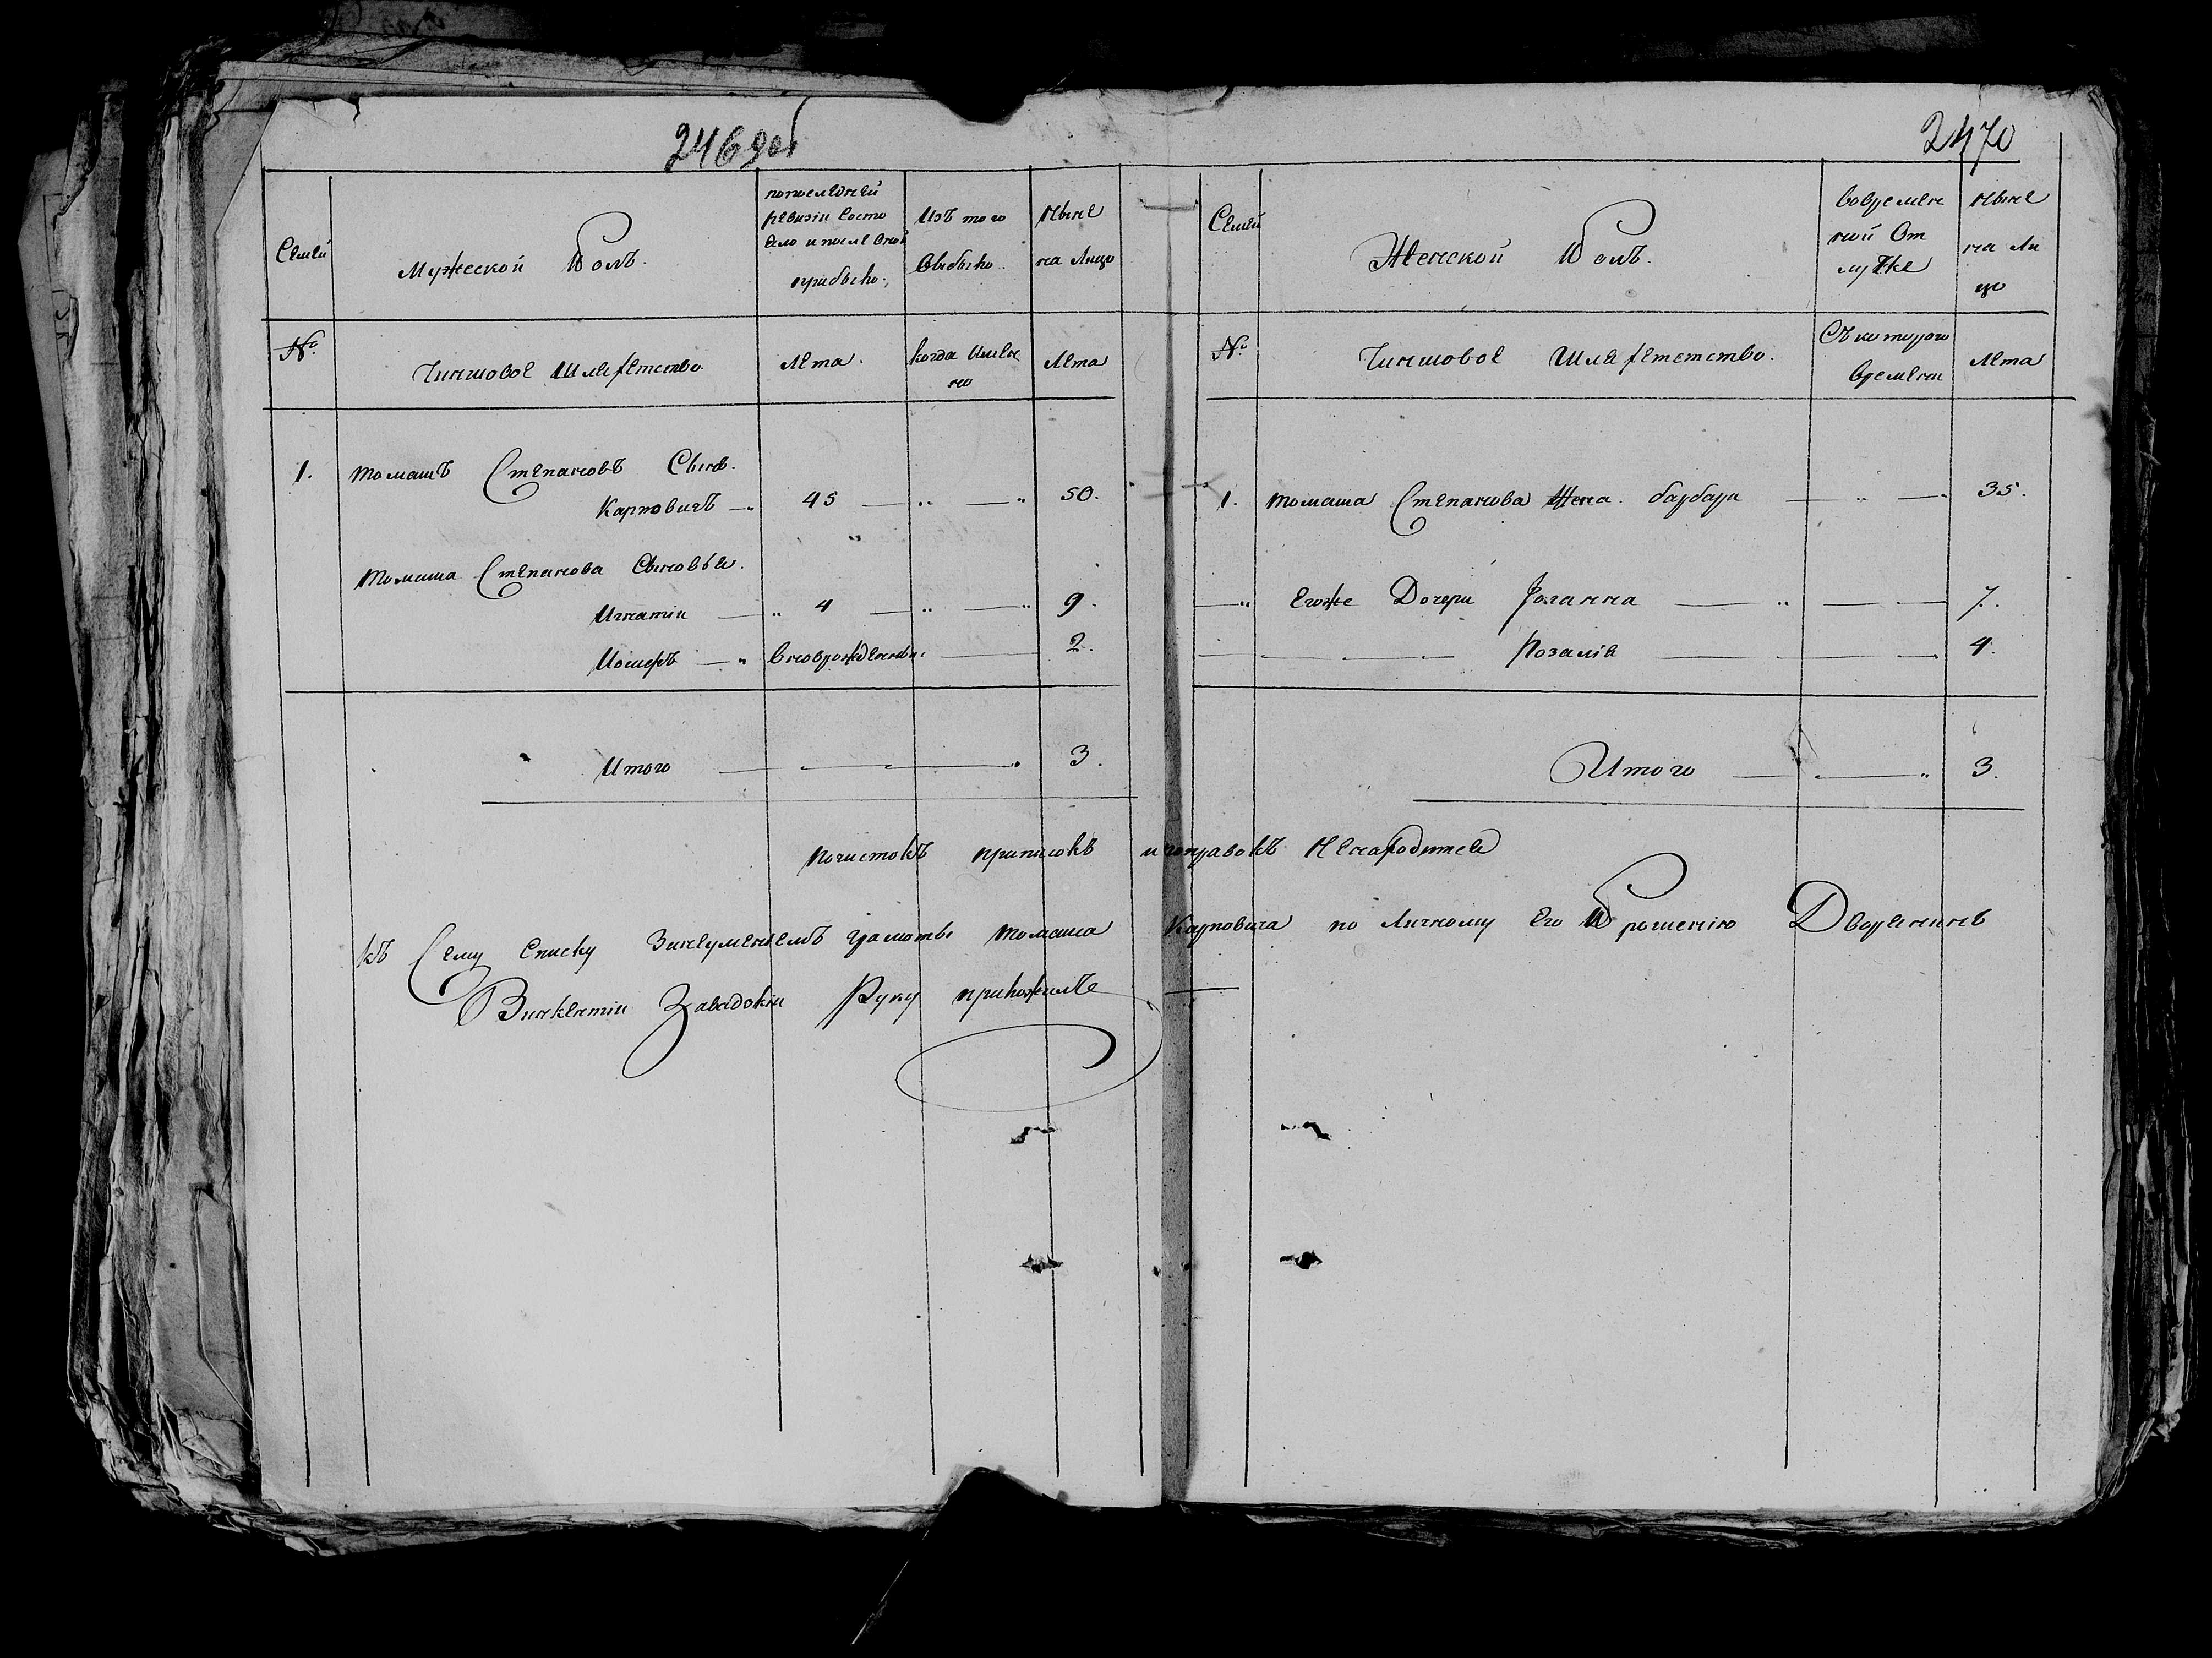 2469об
2470
Семьи
Мужеской Полъ.
попоследней ревизіи состо яло и после оной прибыло.
Изъ того выбыло.
Ныне на лицо
№
Чиншовое Шляхетство
Лета.
когда имян но
Лета
1. Томашъ Степановъ Сынъ.
Карповичъ 45 50.
Томаша Степанова Сыновья.
Игнатіи 4 9.
Иосифъ вновьрожденны. 2.
Итого 3.
Семьи
Женской Полъ.
вовремен ной От лучке
Ныне на Ли цо
№
Чиншовое Шляхетство.
Съ котораго времени
Лета
1. Томаша Степанова Жена. барбара 35.
Егоже Дочери Іоганна 7.
Розалія 4.
Итого 3.
почистокъ приписокъ ипоправокъ Ненаходится
къ Сему Списку Занеуменіемъ грамоты Томаша Карповича по Личному Его Прошенію Дворянинъ
Викентіи Завадскіи Руку приложилъ